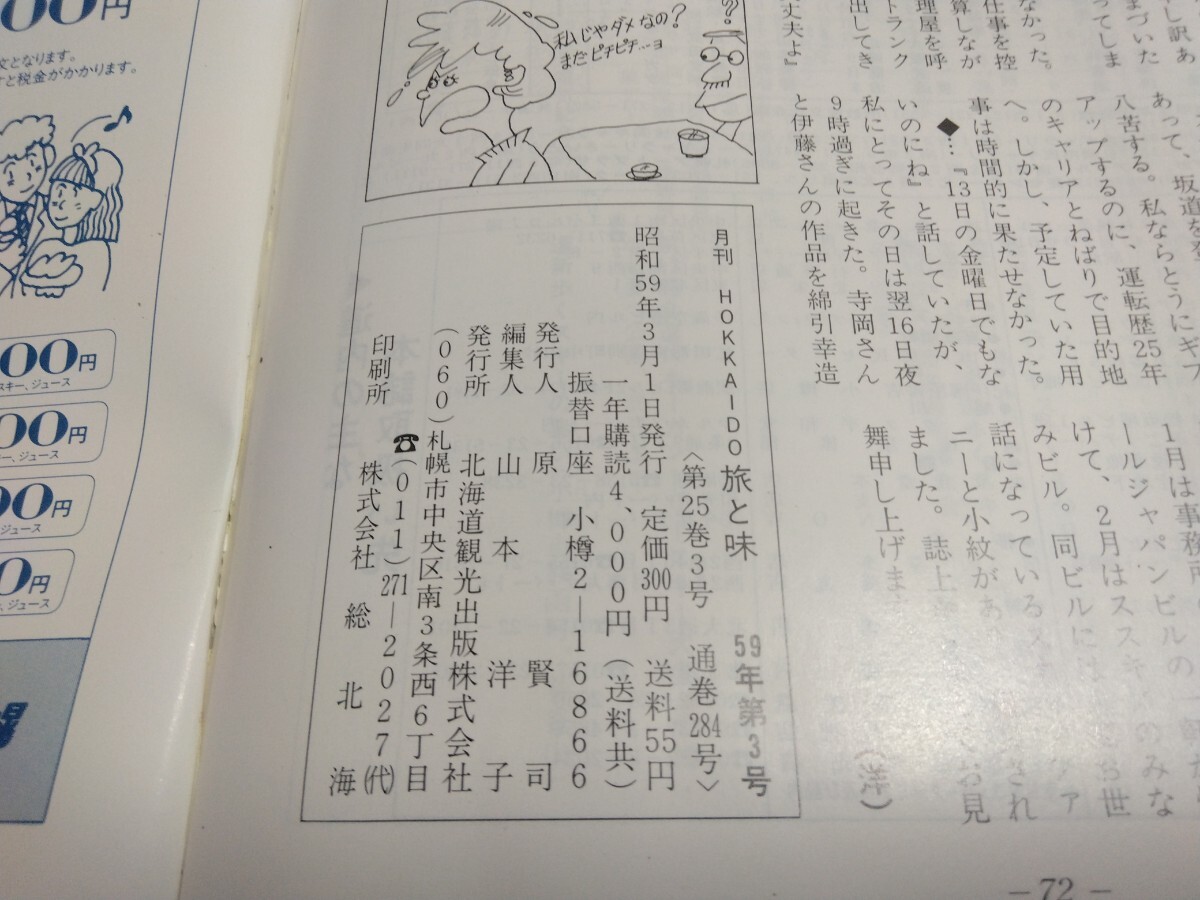 し訳あ
まづいた
ってしま
なかった。
仕事を控
算しなが
理屋を呼
トランク
出してき
丈夫よ』
?
私じゃダメなの?
まだピチピチ…ョ
あって、坂道を
八苦する。私ならとうにギブ
アップするのに、運転歴25年
のキャリアとねばりで目的地
へ。しかし、予定していた用
事は時間的に果たせなかった。
◆…『13日の金曜日でもな
いのにね』と話していたが、
私にとってその日は翌16日夜
9時過ぎに起きた。寺岡さん
と伊藤さんの作品を綿引幸造
1月は事務所
ールジャパンビルの
けて、2月はスス
のみな
みビル。同ビルには
世
話になっている
され
ニーと小紋があ
お見
ました。誌上
舞申し上げま
(洋)
月刊 HOKKAIDO 旅と味 59年第3号
〈第25巻3号 通巻284号〉
昭和59年3月1日発行 定価300円 送料55円
一年購読4、000円(送料共)
振替口座 小樽2―16866
発行人 原 賢司
編集人 山本洋子
発行所 北海道観光出版株式会社
(060)札幌市中央区南3条西6丁目
☎(011)271―2027(代)
印刷所 株式会社 総北海
00円
文となります。
すと税金がかかります。
00円
スキー、ジュース
00円
キー、ジュース
00円
ジュース
0円
、ジュース
－72－